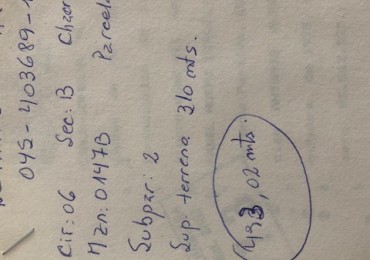 045-403689-
Cir: 06 Sec: B
Mzn: 0147B Parcel
Subpar: 2
Sup. terreno 310 mts.
02 mts.